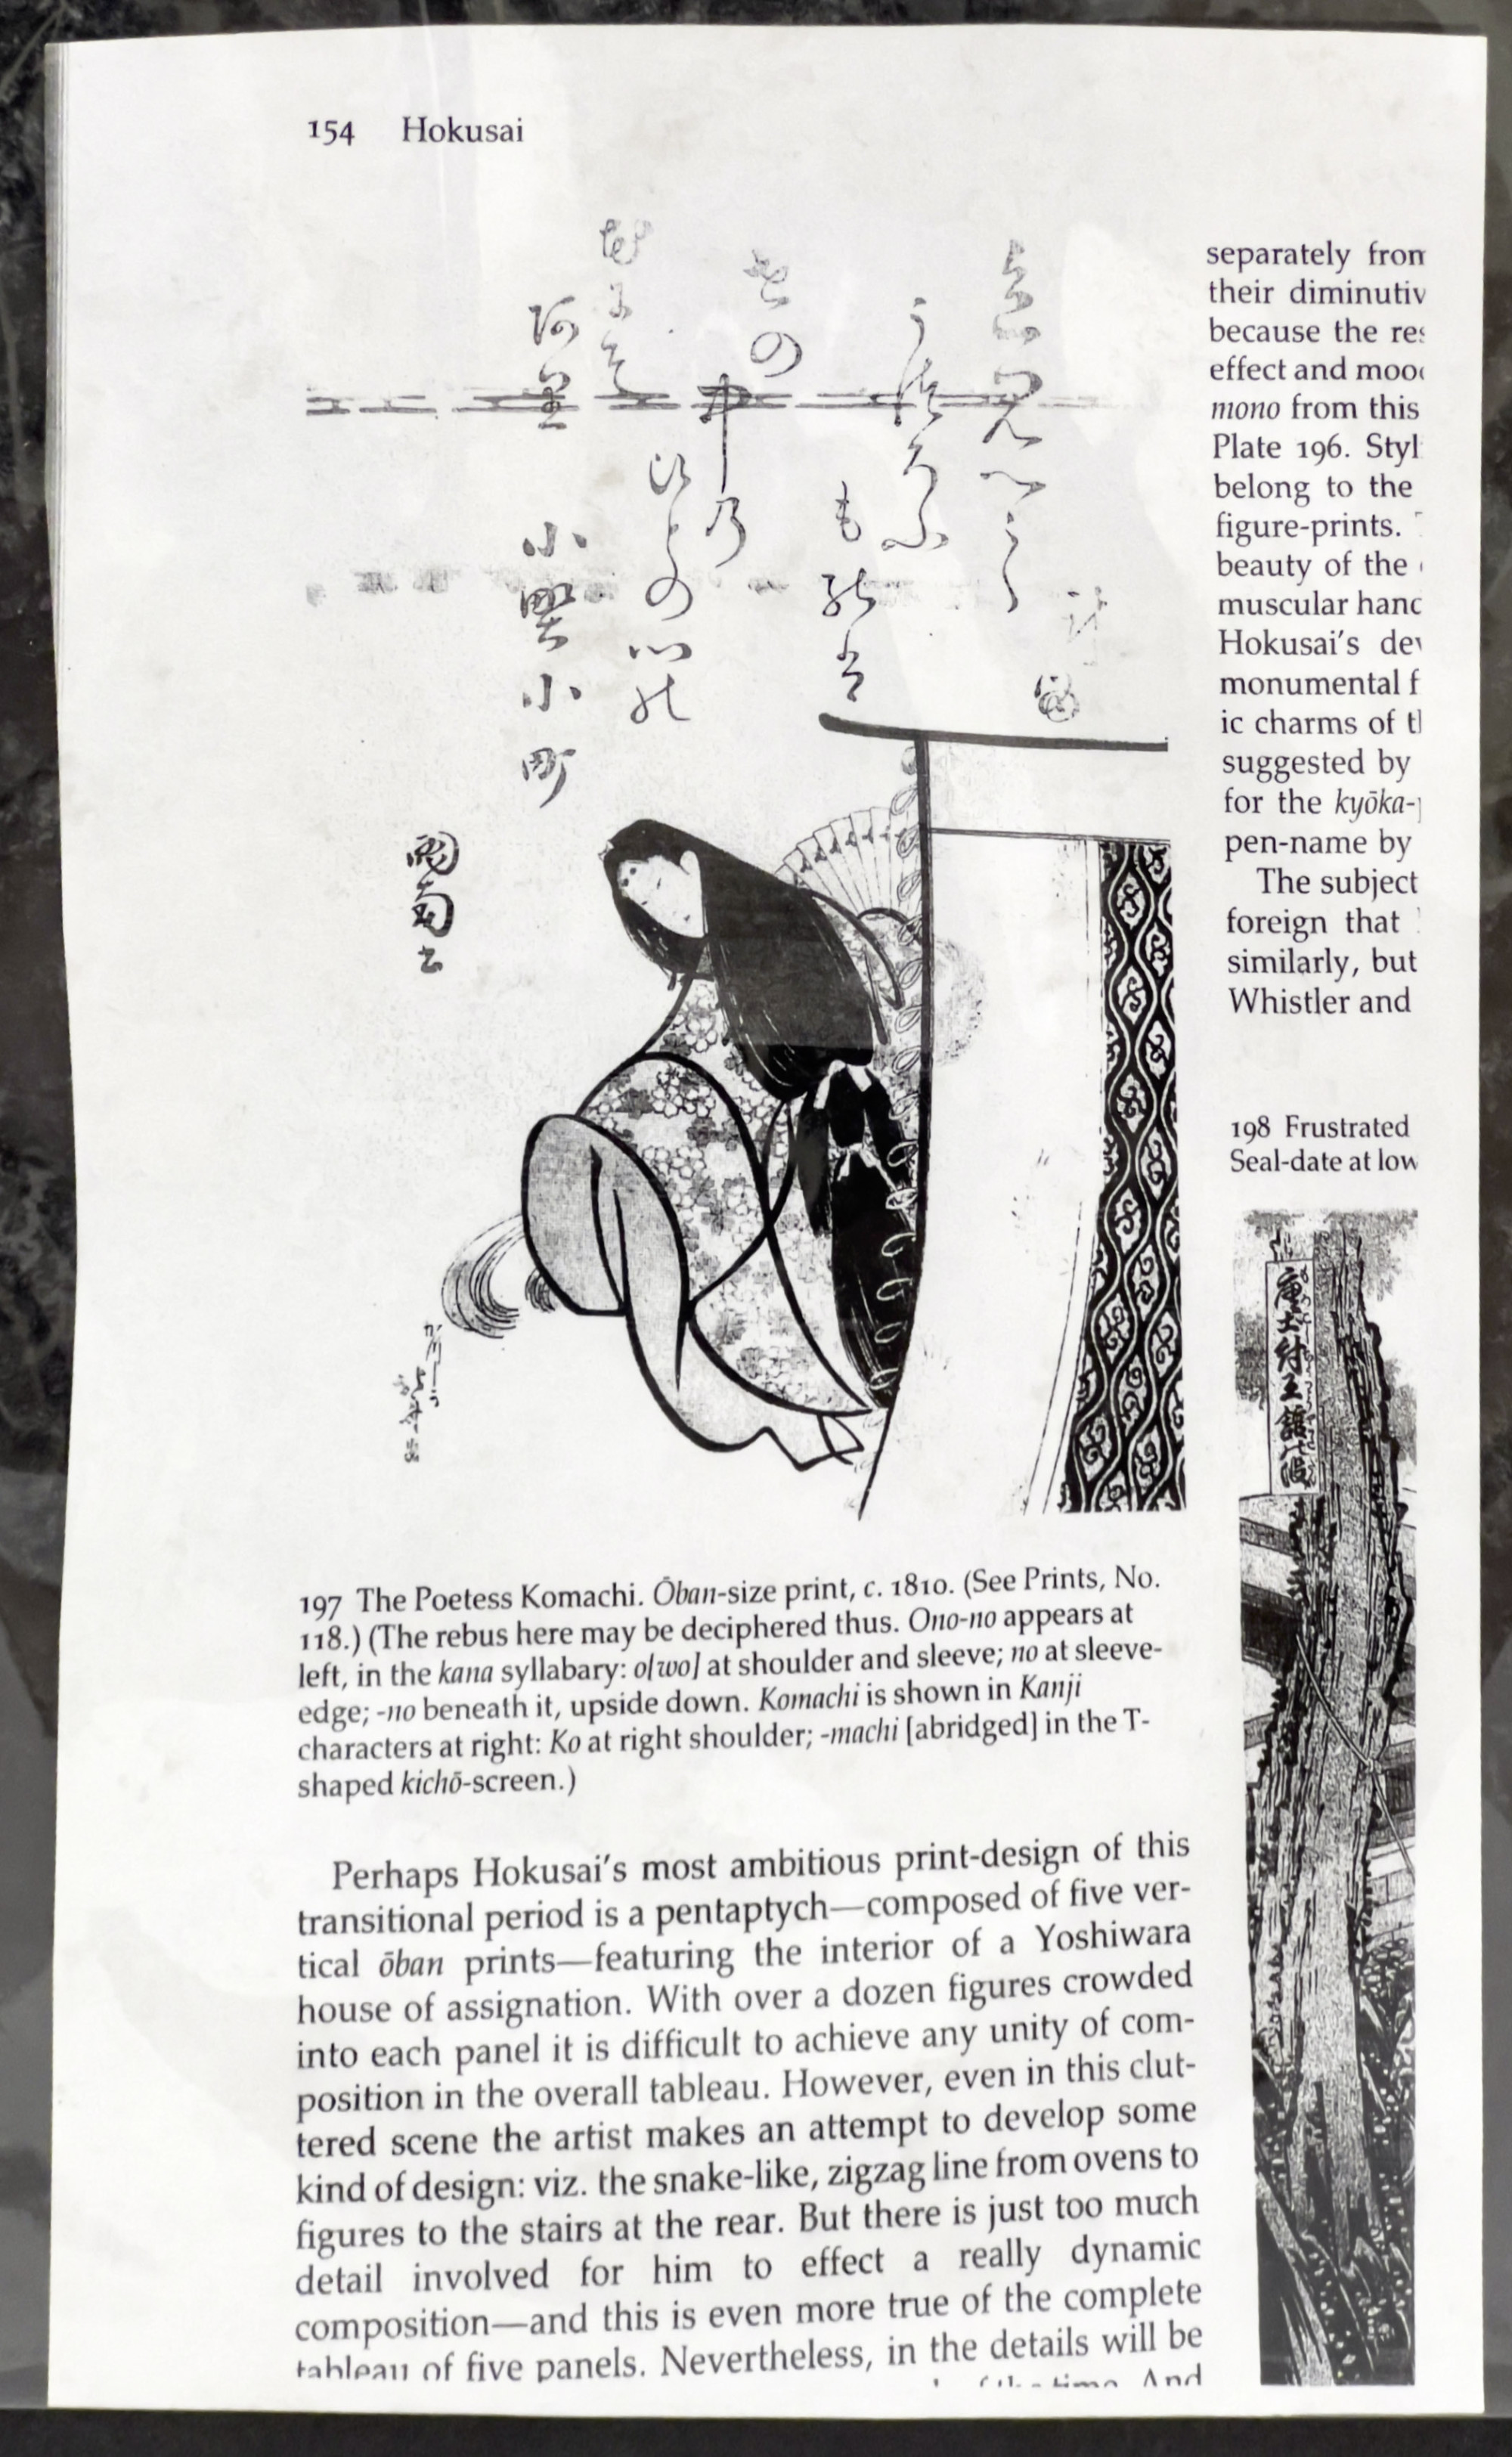 154 Hokusai
うつろふ
ものは
世の
中乃
ひとの心の
小野小町
197 The Poetess Komachi. Ōban-size print, c. 1810. (See Prints, No.
118.) (The rebus here may be deciphered thus. Ono-no appears at
left, in the kana syllabary: o[wo] at shoulder and sleeve; no at sleeve-
edge; -no beneath it, upside down. Komachi is shown in Kanji
characters at right: Ko at right shoulder; -machi [abridged] in the T-
shaped kichō-screen.)
Perhaps Hokusai's most ambitious print-design of this
transitional period is a pentaptych—composed of five ver-
tical ōban prints—featuring the interior of a Yoshiwara
house of assignation. With over a dozen figures crowded
into each panel it is difficult to achieve any unity of com-
position in the overall tableau. However, even in this clut-
tered scene the artist makes an attempt to develop some
kind of design: viz. the snake-like, zigzag line from ovens to
figures to the stairs at the rear. But there is just too much
detail involved for him to effect a really dynamic
composition—and this is even more true of the complete
tableau of five panels. Nevertheless, in the details will be
time. And
separately from
their diminutiv
because the res
effect and mood
mono from this
Plate 196. Styl
belong to the
figure-prints.
beauty of the
muscular hand
Hokusai's dev
monumental f
ic charms of tl
suggested by
for the kyōka-
pen-name by
The subject
foreign that
similarly, but
Whistler and
198 Frustrated
Seal-date at low